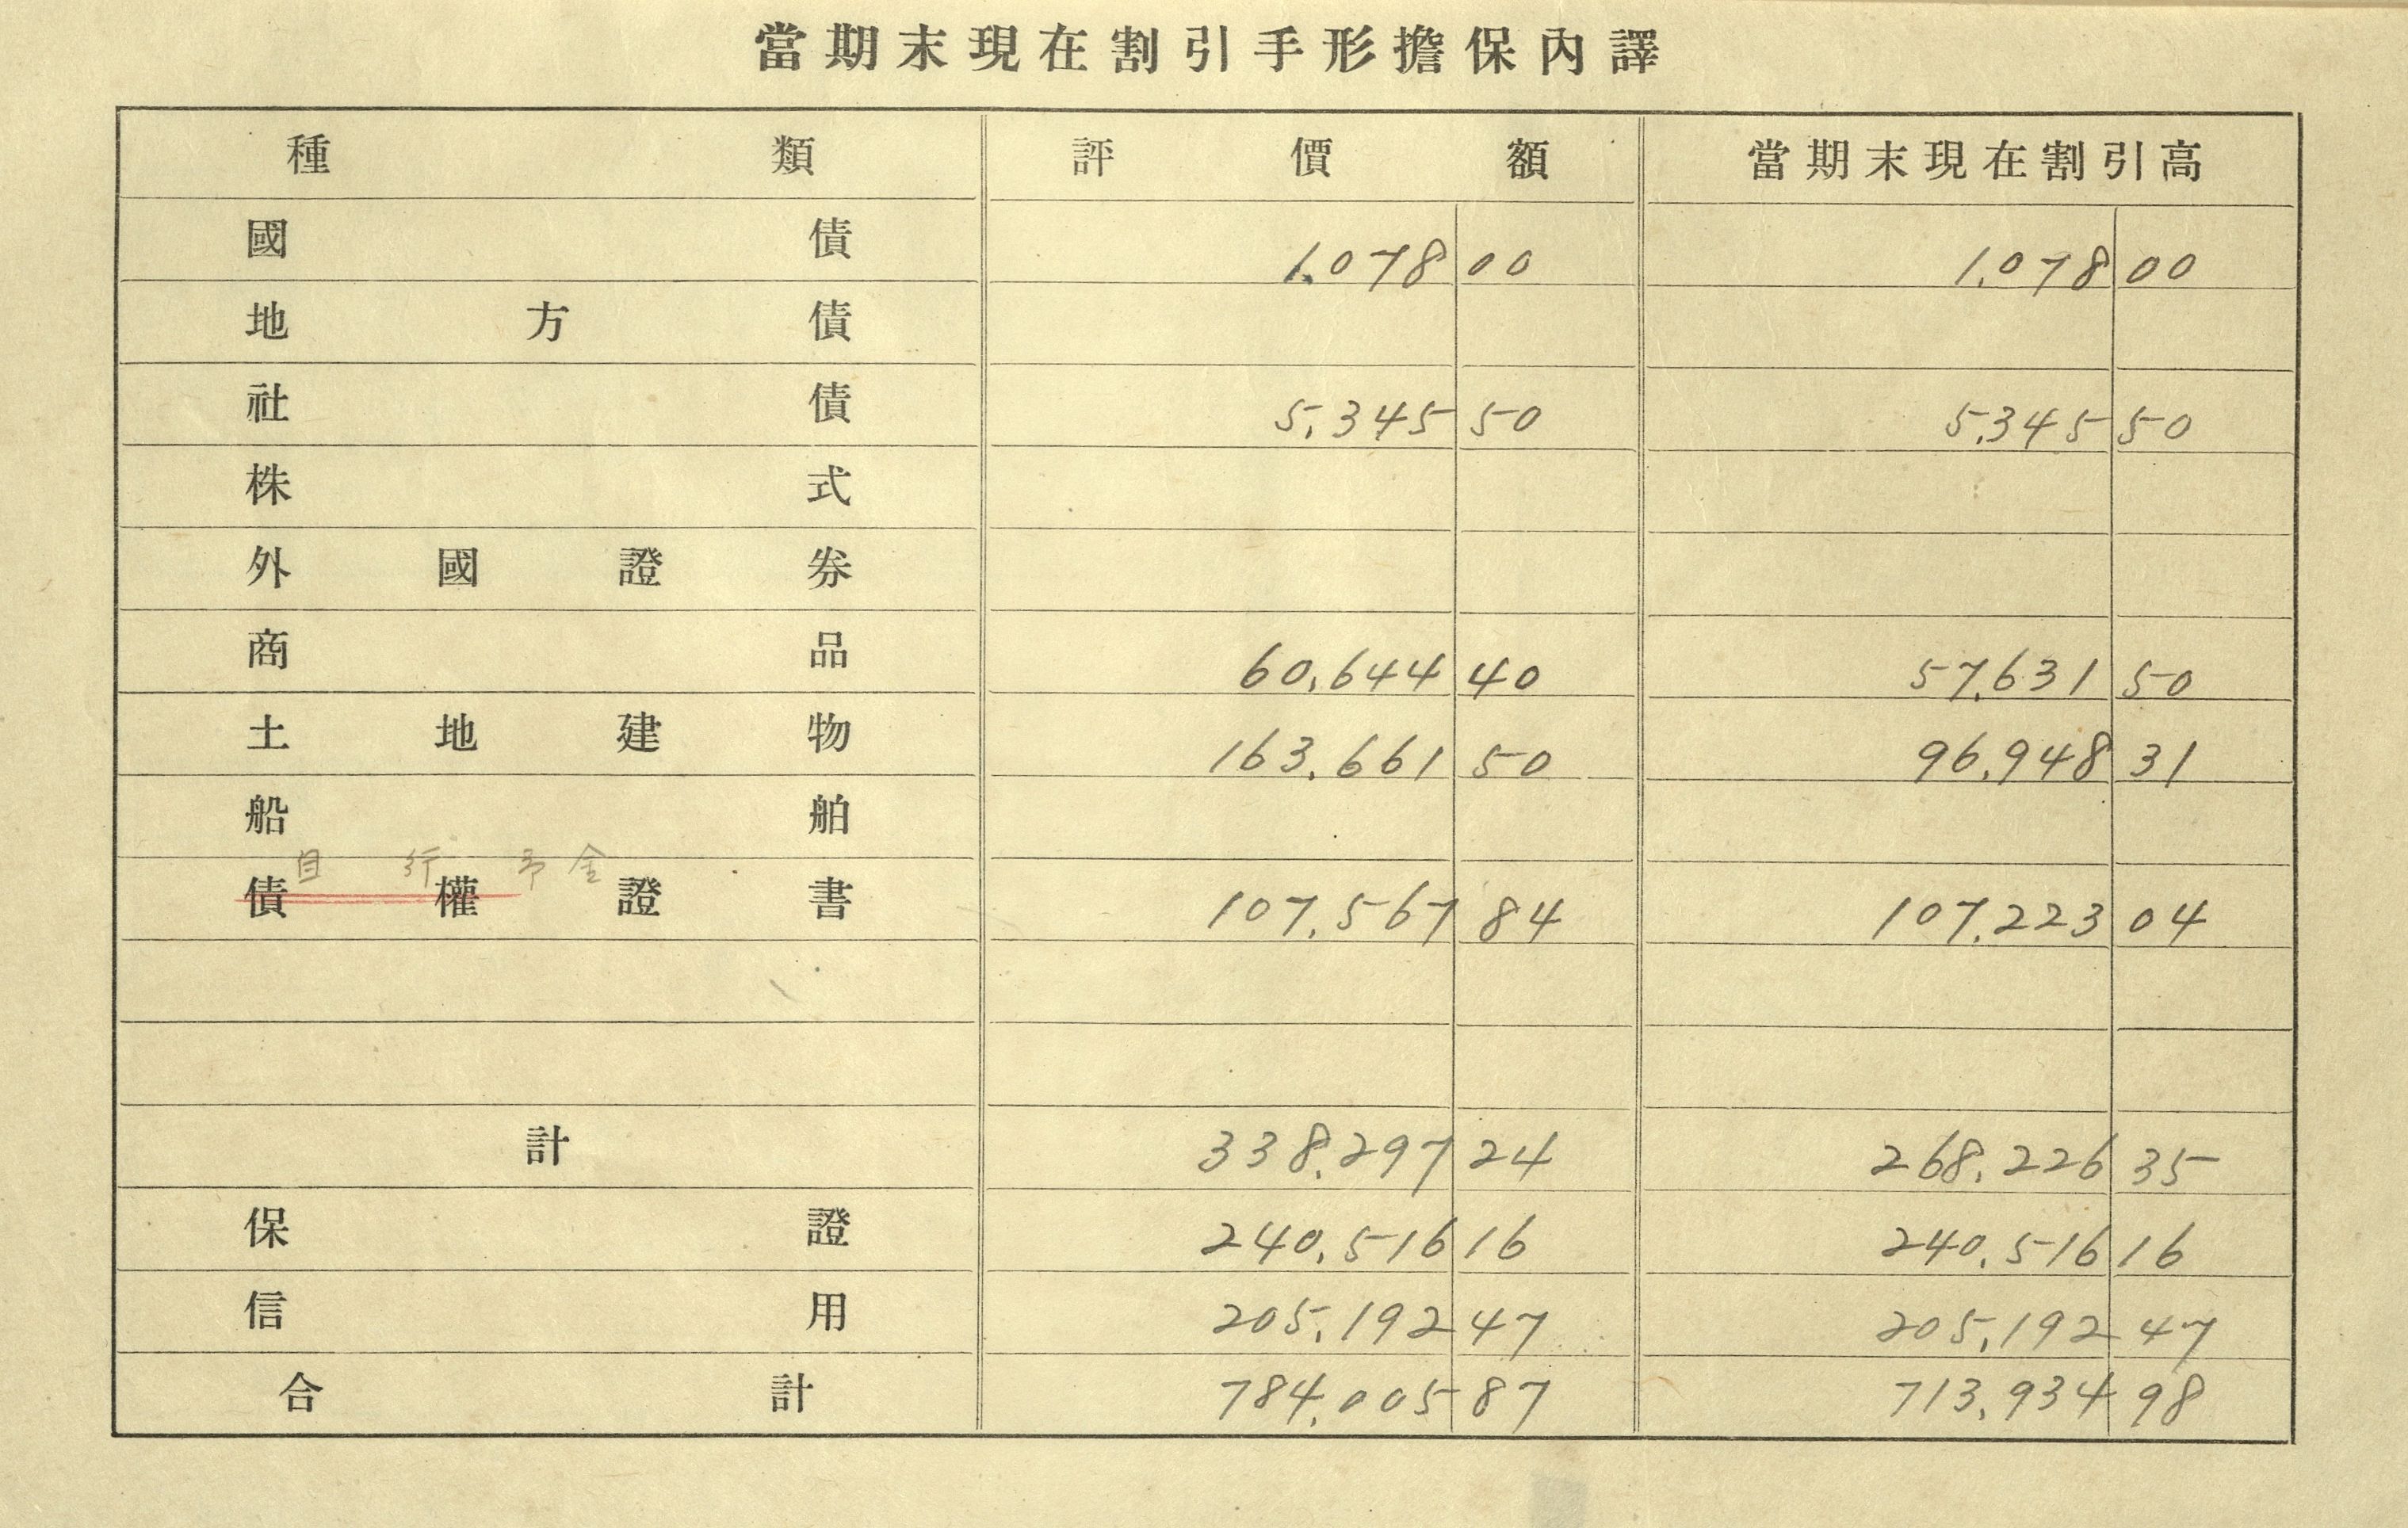 當期末現在割引手形擔保內譯
種類 評價額 當期末現在割引高
國債 1,078 00 1,078 00
地方債
社債 5,345 50 5,345 50
株式
外國證券
商品 60,644 40 57,631 50
土地建物 163,661 50 96,948 31
船舶
自行予金
債權證書 107,567 84 107,223 04
計 338,297 24 268,226 35
保證 240,516 16 240,516 16
信用 205,192 47 205,192 47
合計 784,005 87 713,934 98